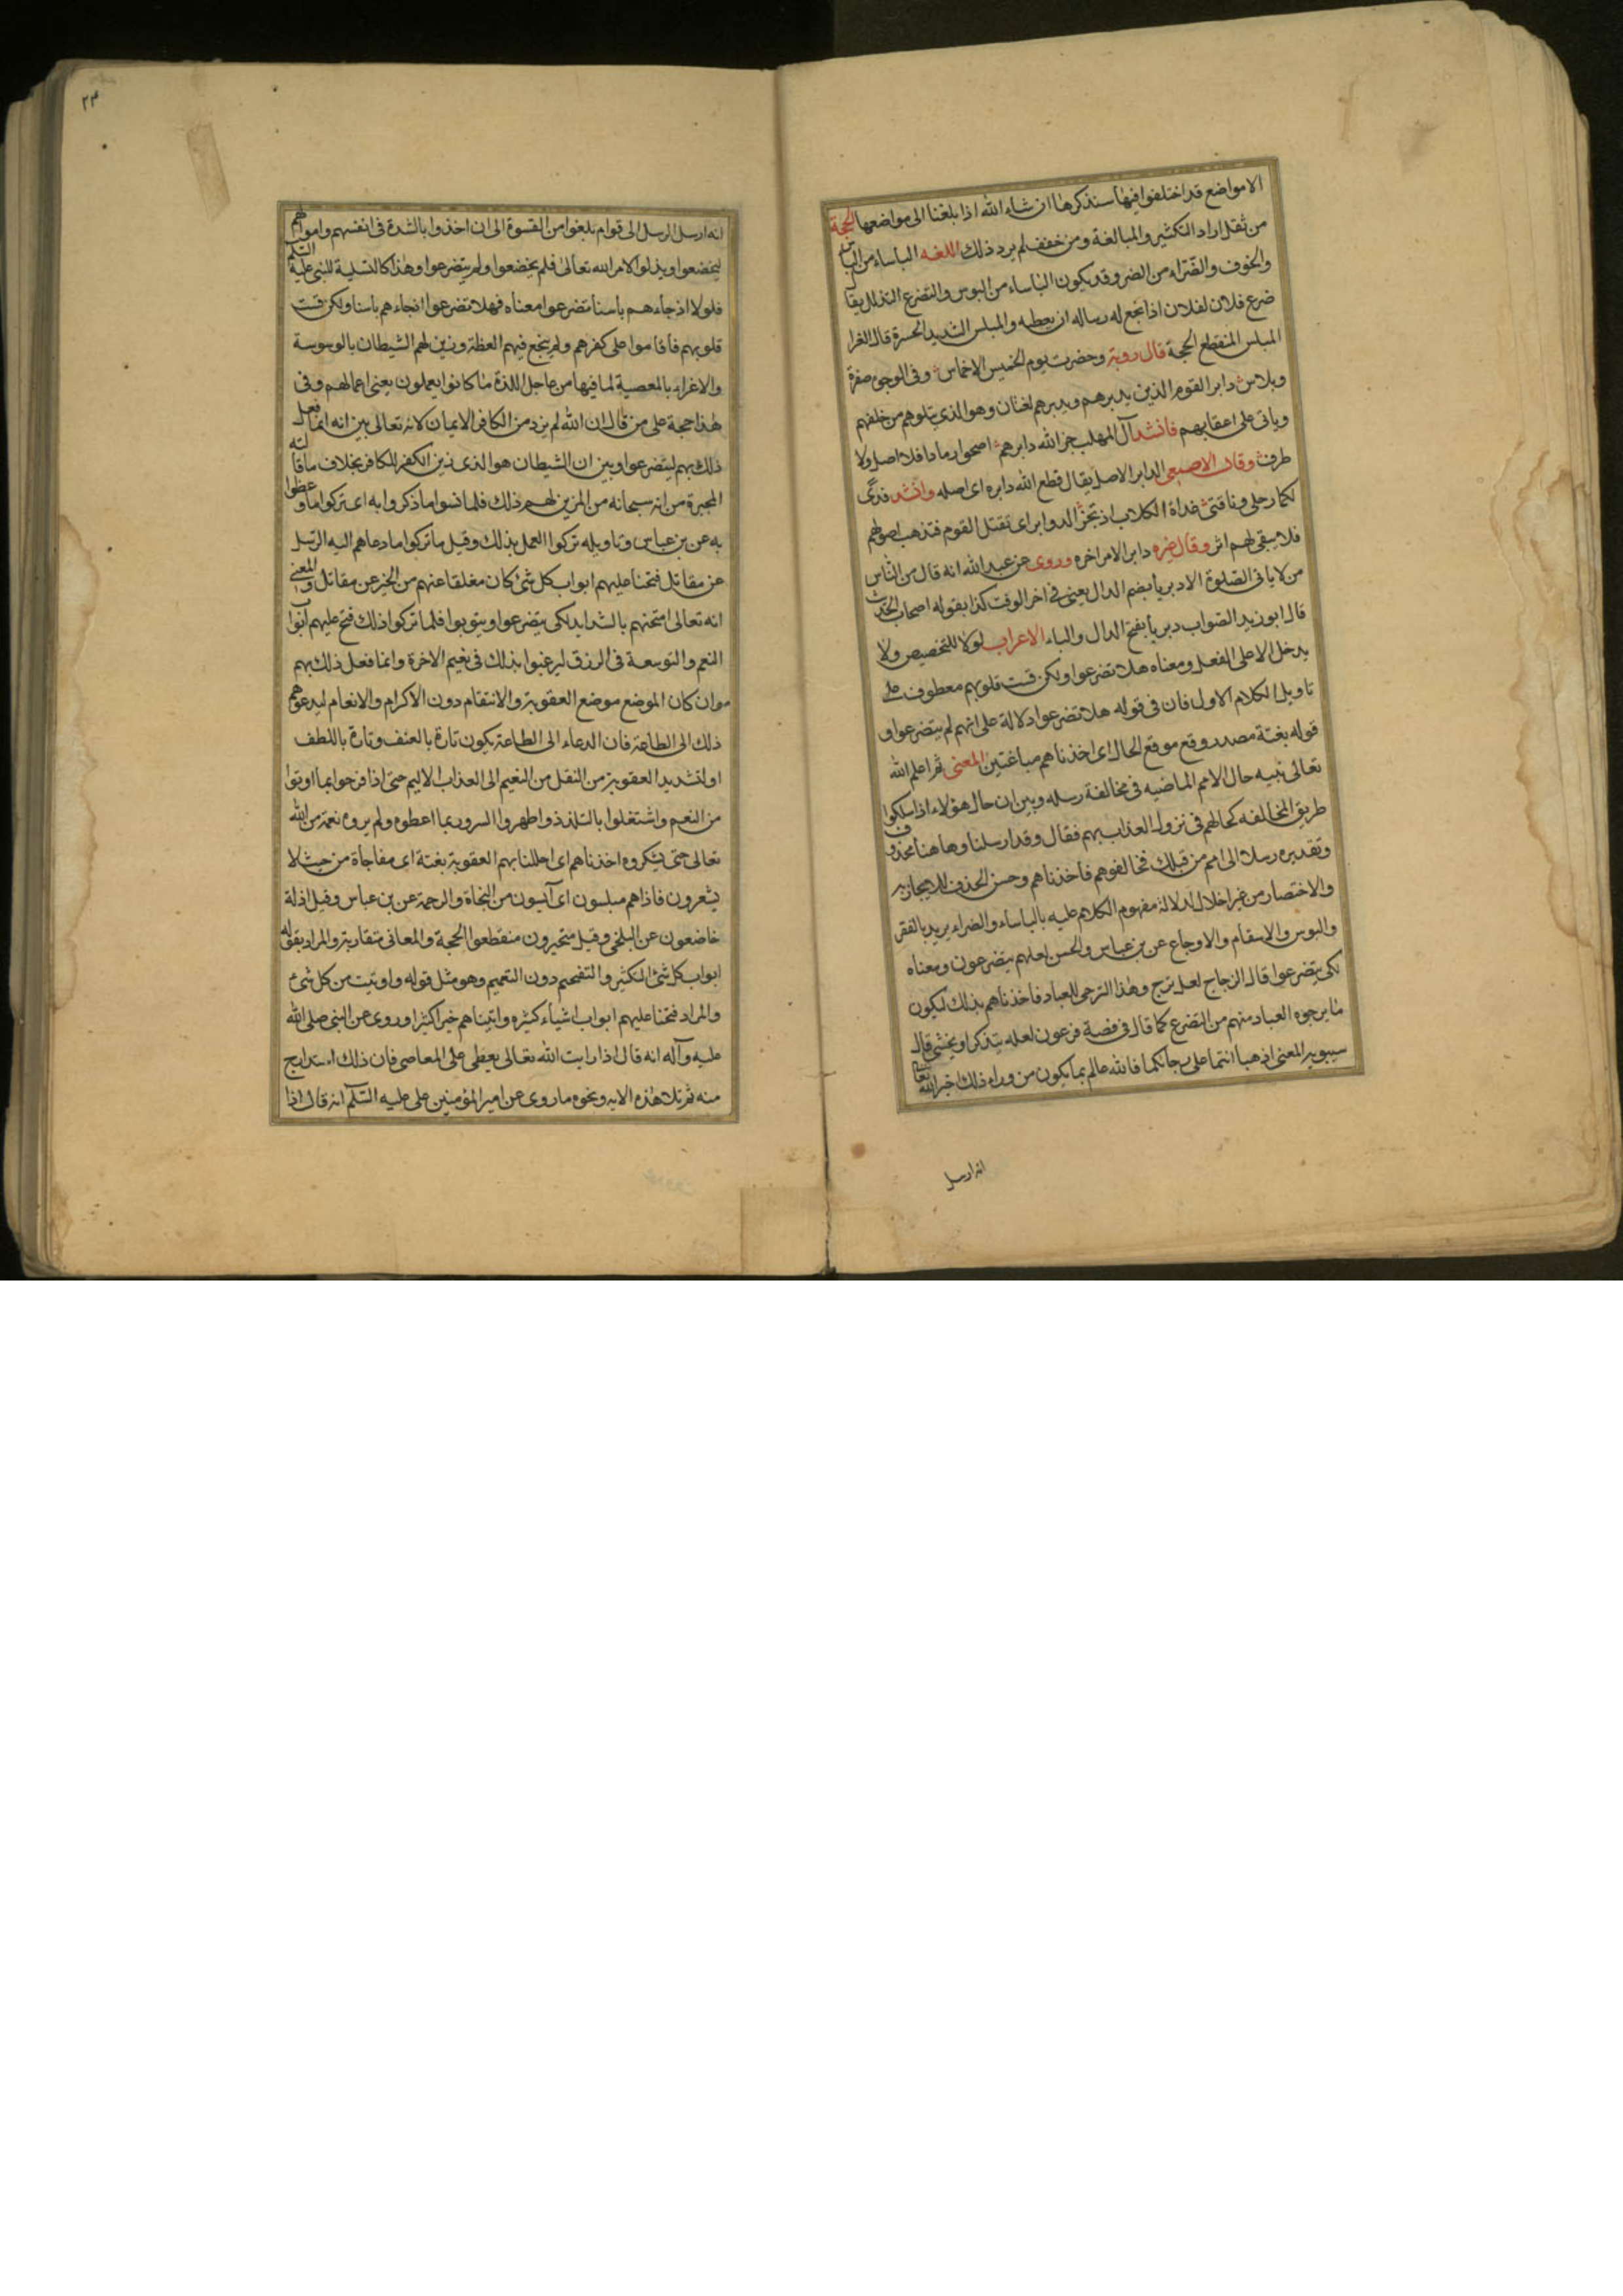 الا مواضع قد اختلفوا فيها سنذكرها ان شاء الله اذا بلغنا الى مواضعها الحجة
من ثقل اراد التكثير والمبالغة ومن خفف لم يرد ذلك اللغه الباساء من الباس
والخوف والضراء من الضر وقد يكون الباساء من البوس والتضرع التذلل يقا
ضرع فلان لفلان اذا بخع له وساله ان يعطيه والمبلس الشديد الحسرة قال الفرا
المبلس المنقطع الحجة قال روبة وحضرت يوم الخميس الاخماس وفى الوجوه صفرة
وبلاس دابر القوم الذين يدبرهم ويدبرهم لغتان وهو الذى يتلوهم من خلفهم
وياتى على اعقابهم فانشد آل المهلب جز الله دابرهم اصحوا رمادا فلا اصل ولا
طرف وقال الاصمعى الدابر الاصل يقال قطع الله دابره اى اصله وانشد فدى
لكما رحلى وناقتى غداة الكلاب اذ تجز الدوابر اى تقتل القوم فتذهب اصولهم
فلا يبقى لهم اثر وقال غيره دابر الامر اخره وروى عن عبد الله انه قال من الناس
من لا ياتى الصلوة الا دبريا بضم الدال يعنى فى اخر الوقت كذا يقوله اصحاب الحديث
قال ابو زيد الصواب دبريا بفتح الدال والباء الاعراب لولا للتخصيص ولا
يدخل الا على الفعل ومعناه هلا تضرعوا ولكن قست قلوبهم معطوف على
تاويل الكلام الاول فان فى قوله هلا تضرعوا دلالة على انهم لم يتضرعوا و
قوله بغتة مصدر وقع موقع الحال اى اخذناهم مباغتين المعنى ثم اعلم الله
تعالى نبيه حال الامم الماضيه فى مخالفة رسله وبين ان حال هؤلاء اذا سلكوا
طريق المخالفه كحالهم فى نزول العذاب بهم فقال وقد ارسلنا وهاهنا محذوف
وتقديره رسلا الى امم من قبلك فخالفوهم فاخذناهم وحسن الحذف للايجاز به
والاختصار من غير اخلال لدلالة مفهوم الكلام عليه بالباساء والضراء يريد بالفقر
والبوس والاسقام والاوجاع عن بن عباس والحسن لعلهم يتضرعون ومعناه
لكى يتضرعوا قال الزجاج لعل ترج وهذا الترجى للعباد فاخذناهم بذلك ليكون
ما يرجوه العباد منهم من التضرع كما قال فى قصة فرعون لعله يتذكر او يخشى قال
سيبويه المعنى اذهبا انتما على رجائكما فالله عالم بما يكون من وراء ذلك اخبر الله تعا
انه ارسل
٢٣
انه ارسل الرسل الى قوام بلغوا من القسوة الى ان اخذوا بالشدة فى انفسهم واموالهم
ليخضعوا ويذلوا لامر الله تعالى فلم يخضعوا ولم يتضرعوا وهذا كالتسلية للنبى عليه السلم
فلولا اذ جاءهم باسنا تضرعوا معناه فهلا تضرعوا اذ جاءهم باسنا ولكن قست
قلوبهم فاقاموا على كفرهم ولم ينجع فيهم العظة وزين لهم الشيطان بالوسوسة
والاغراء بالمعصية لما فيها من عاجل اللذة ما كانوا يعملون يعنى اعمالهم وفى
هذا حجة على من قال ان الله لم يرد من الكافر الايمان لانه تعالى بين انه انما فعل
ذلك بهم ليتضرعوا وبين ان الشيطان هو الذى زين الكفر للكافر بخلاف ما قالته
المجبرة من انه سبحانه من المزين لهم ذلك فلما نسوا ما ذكروا به اى تركوا ما وعظوا
به عن بن عباس وتاويله تركوا العمل بذلك وقيل ما تركوا ما دعاهم اليه الرسل
عن مقاتل فتحنا عليهم ابواب كل شئ كان مغلقا عنهم من الخير عن مقاتل والمعنى
انه تعالى امتحنهم بالشدايد لكى يتضرعوا ويتوبوا فلما تركوا ذلك فتح عليهم ابواب
النعم والتوسعة فى الرزق ليرغبوا بذلك فى نعيم الاخرة وانما فعل ذلك بهم
وان كان الموضع موضع العقوبة والانتقام دون الاكرام والانعام ليدعوهم
ذلك الى الطاعة فان الدعاء الى الطاعة يكون تارة بالعنف وتارة باللطف
او لتشديد العقوبة من النقل من النعيم الى العذاب الاليم حتى اذا فرحوا بما اوتوا
من النعم واشتغلوا بالتلذذ واظهروا السرور بما اعطوه ولم يروه نعمة من الله
تعالى حتى يشكروه اخذناهم اى احللنا بهم العقوبة بغتة اى مفاجاة من حيث لا
يشعرون فاذاهم مبلسون اى آئيسون من النجاة والرحمة عن بن عباس وقيل اذلة
خاضعون عن البلخى وقيل متحيرون منقطعوا الحجة والمعانى متقاربة والمراد بقوله
ابواب كل شئ التكثير والتفخيم دون التعميم وهو مثل قوله واوتيت من كل شئ
والمراد فتحنا عليهم ابواب اشياء كثيره واتيناهم خيرا كثيرا وروى عن النبى صلى الله
عليه وآله انه قال اذا رايت الله تعالى يعطى على المعاصى فان ذلك استدراج
منه ثم تلا هذه الايه ونحوه ما روى عن امير المؤمنين على عليه السلم انه قال اذا